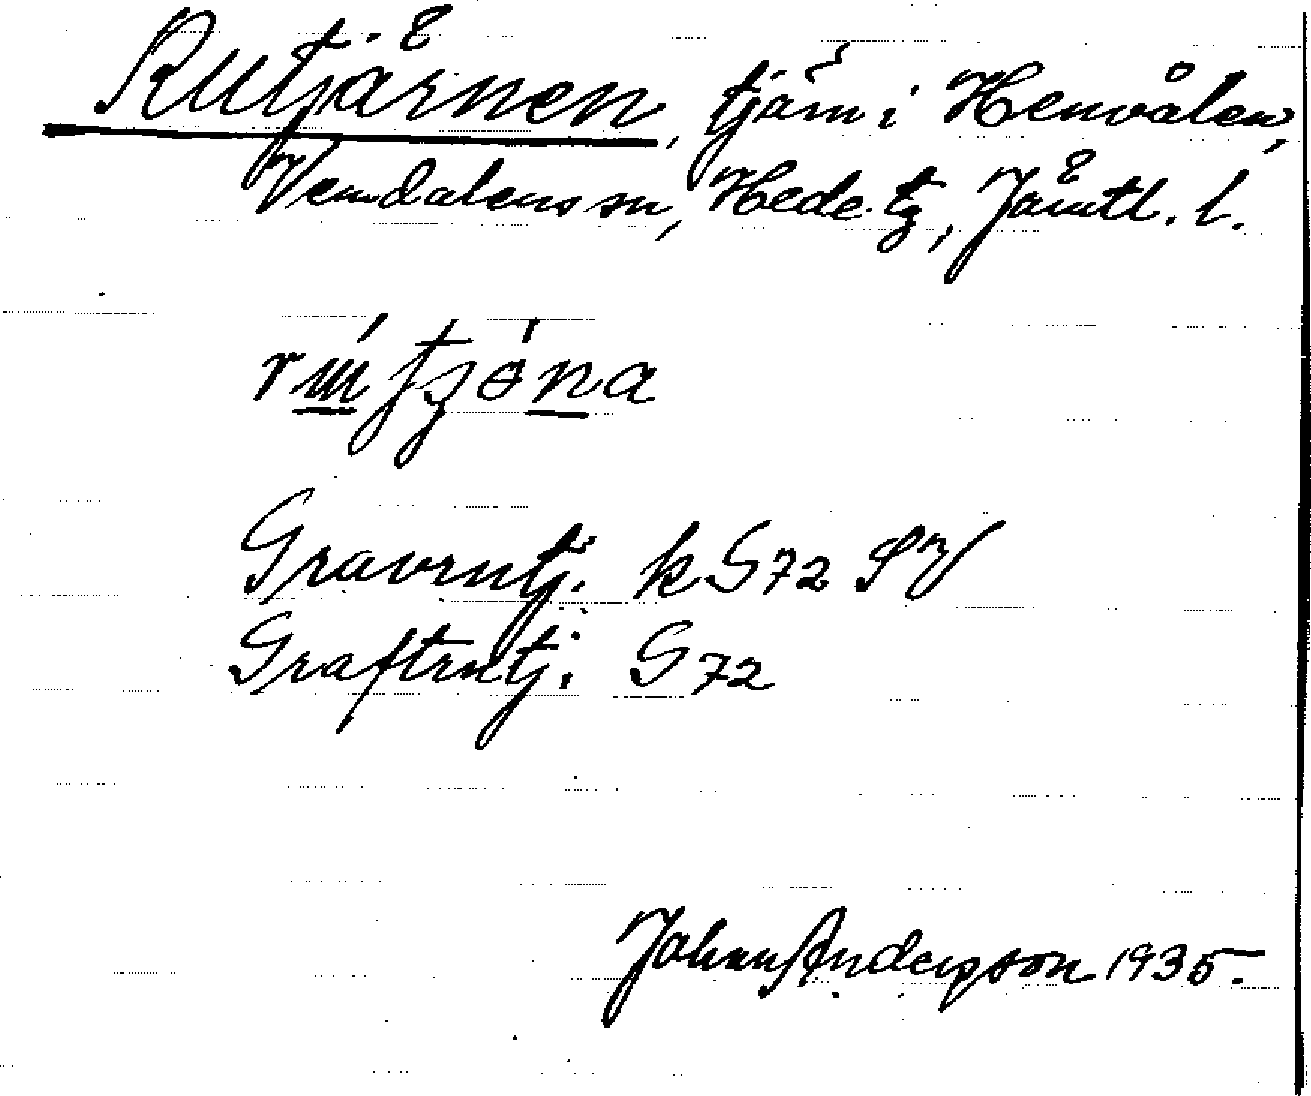 Rutjärnen, tjärn i Henvålen,
Vemdalens sn, Hede tg, Jämtl. l.
Gravrutj. k S72 SV
Graftrutj. S72
Johan Andersson 1935.